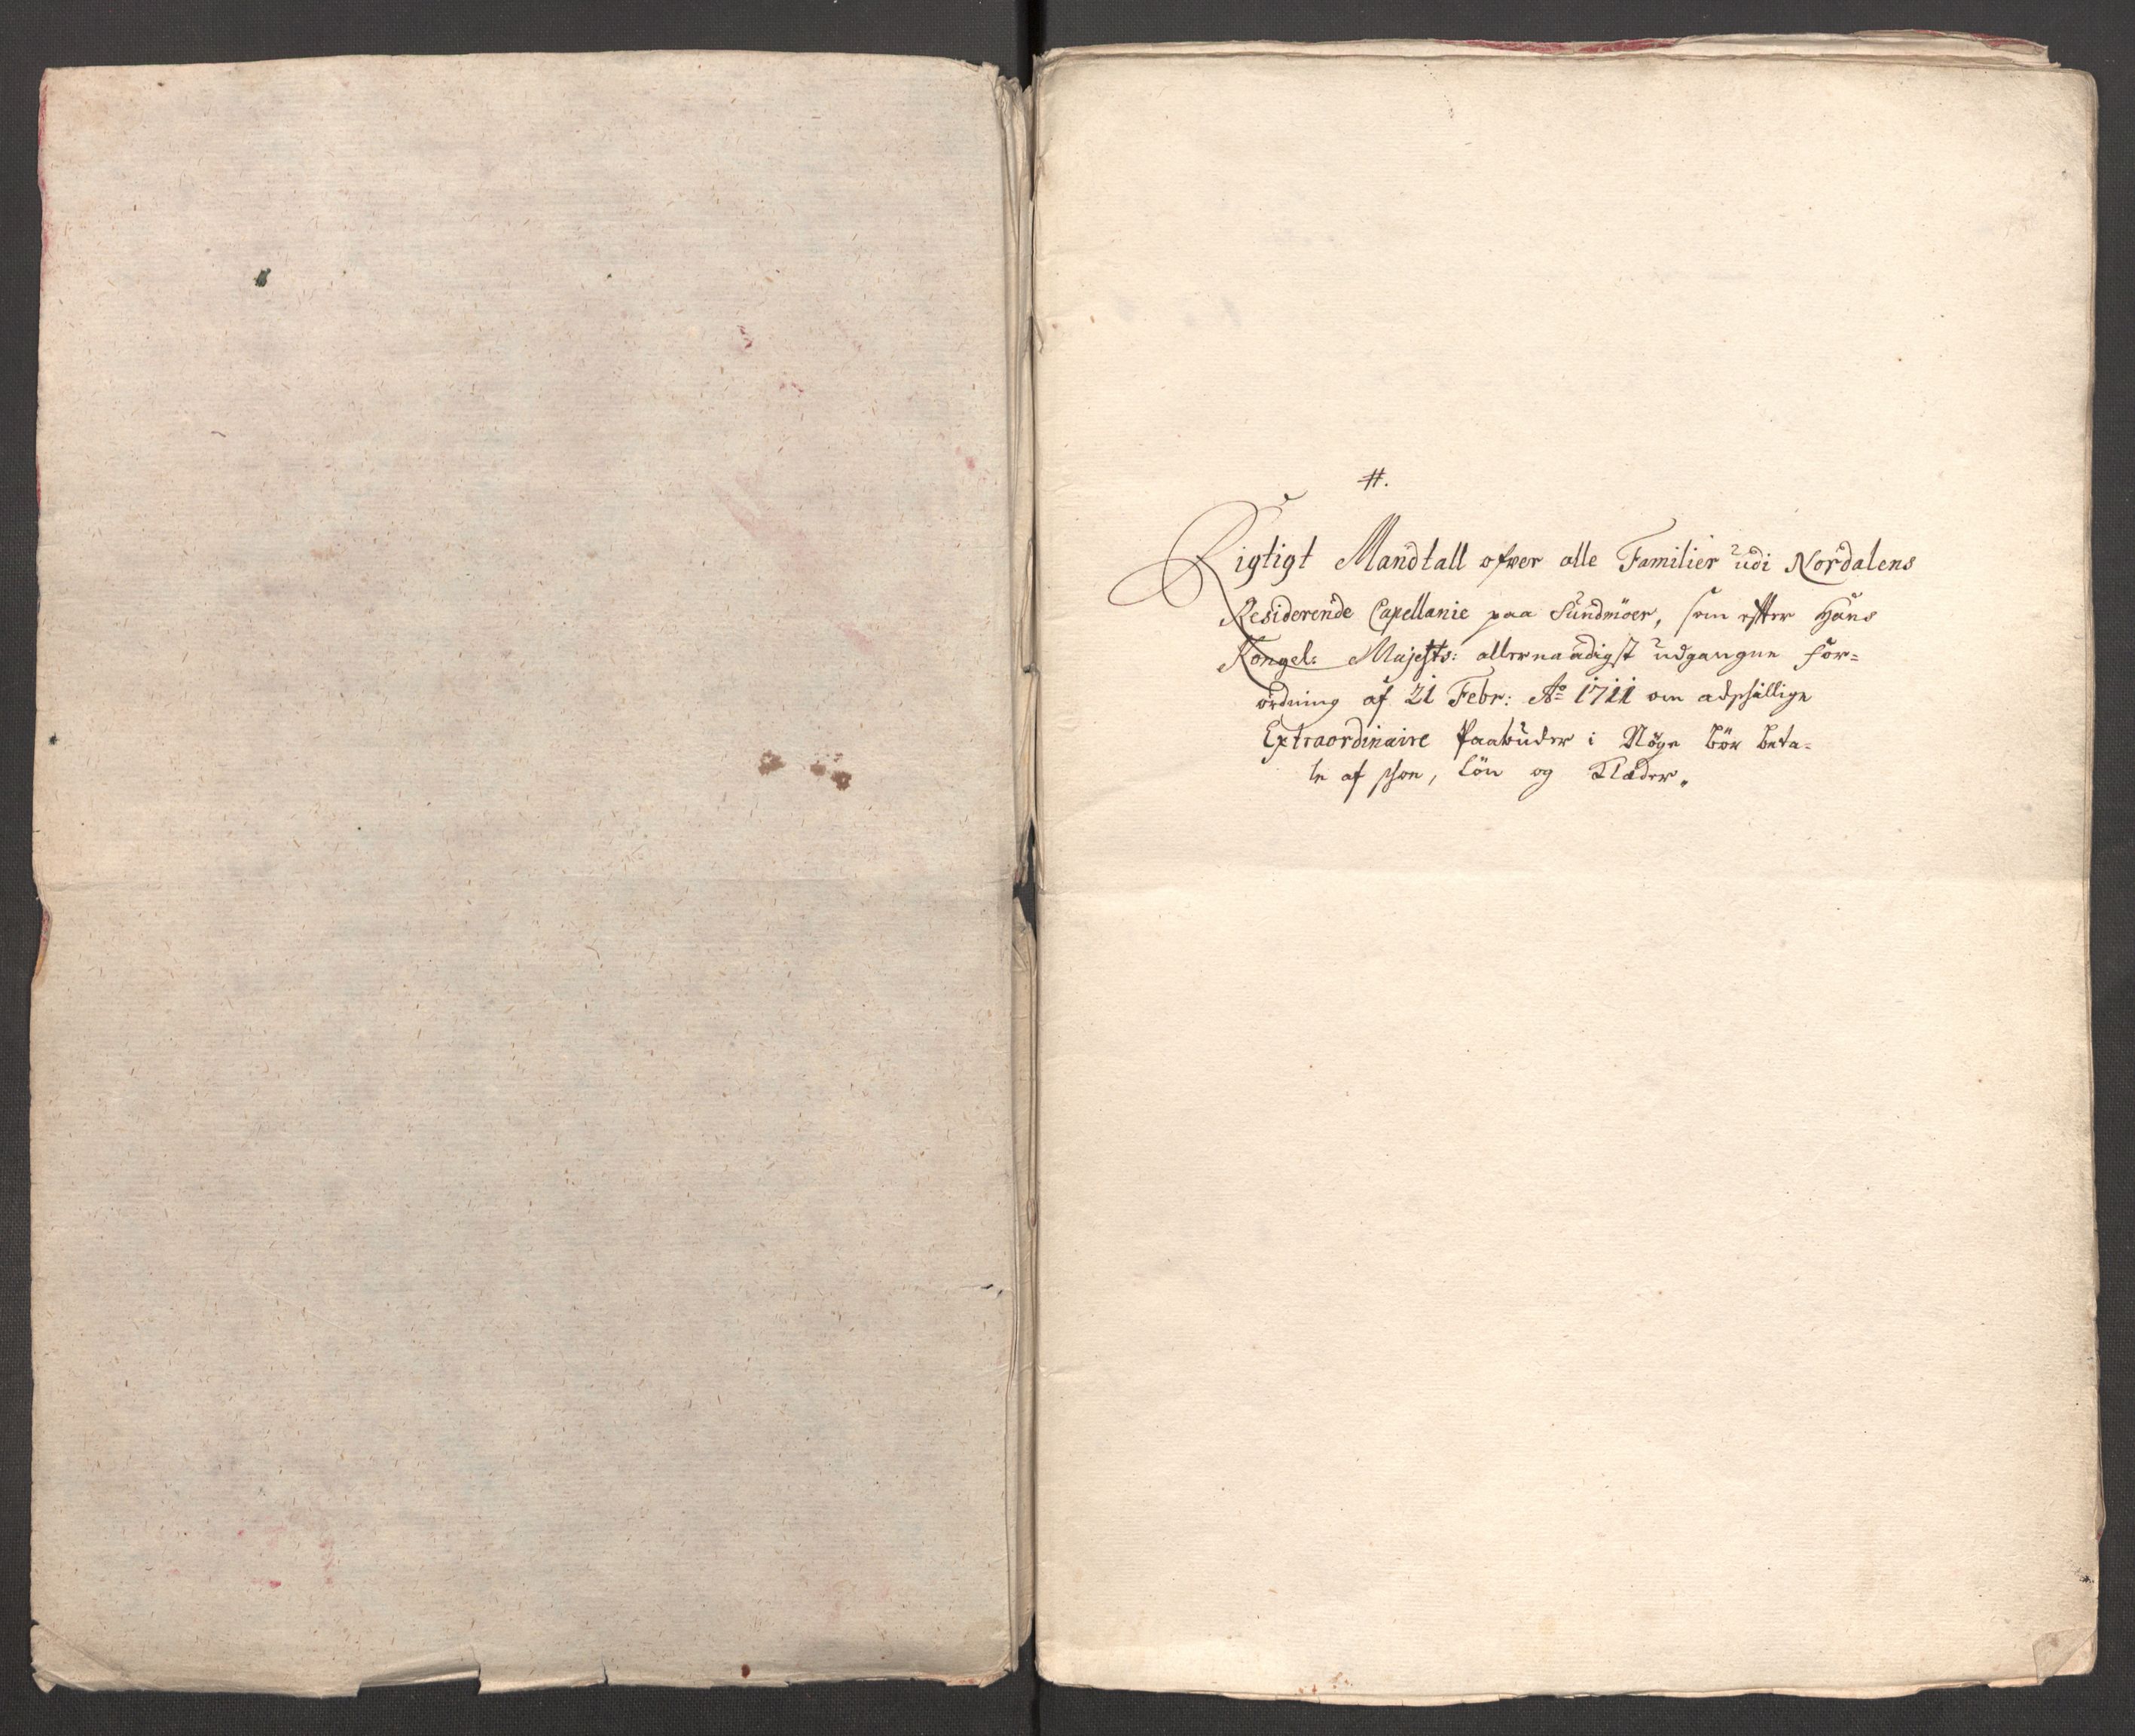 #.
Rigtigt Mandtall ofwer alle Familier udi Nordalens
Residerende Capellanie paa Sundmöer, som efter Hans
Kongel: Majests: allernaadigst udgangne for=
ordning af 21 Febr: Ao 1711 om adschillige
Extraordinaire Paabuder i Norge bör beta=
le af schoe, Lön og Klæder.